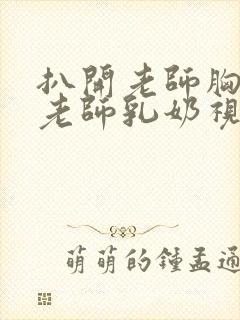 扒開老師胸
老師乳奶視
萌萌的鍾孟通